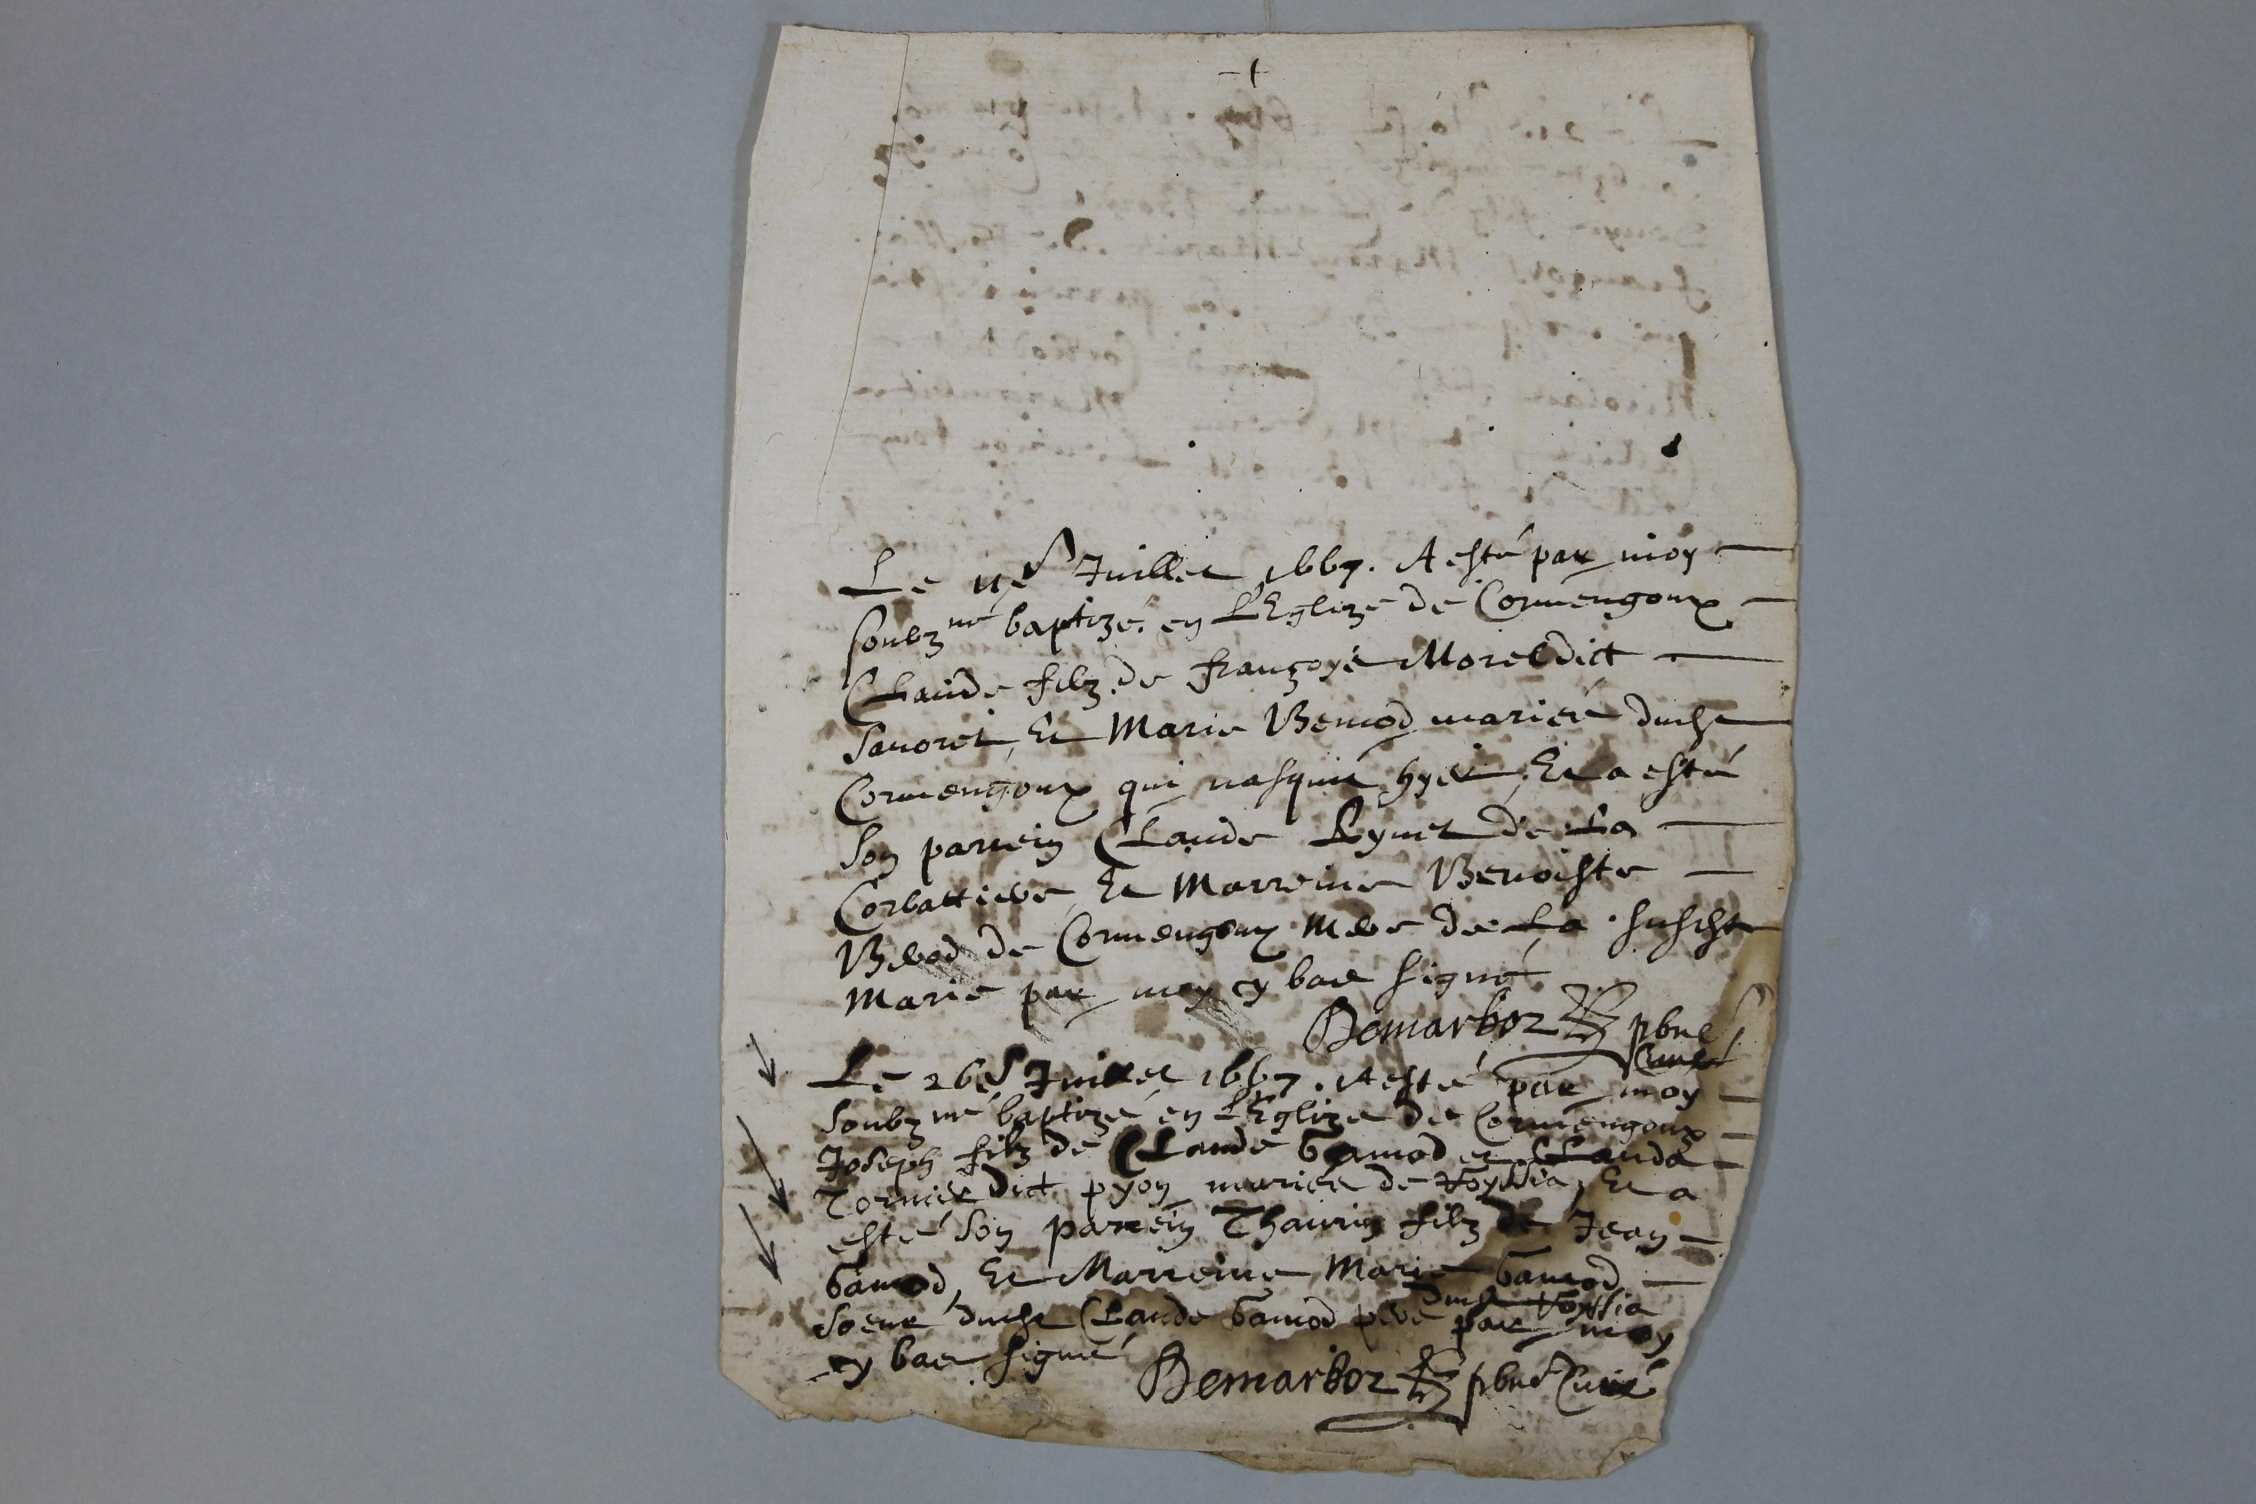 +
Le 11e Juillet 1667. A esté par moy
soubz né baptizé en L'Eglize de Cormengoux
Claude filz de françoys Morel dict
Sauoret, Et Marie Bemod mariée duch
Cormengoux qui nasquit hyer, Et a esté
son parrein Claude Rymet de La
Corbattiere, Et Marreine Benoiste
de Cormengoux Mere de La susdte
Marie par moy cy bas signé
Demarboz pbre Curé
Le 26e Juillet 1667. A esté par moy
soubz né baptizé en L'Eglize de Cormengoux
Joseph filz de Claude Gamod et Clauda
Tornier dict pyon mariée de Royssia, Et a
esté son parrein Thaurin filz de Jean
Gamod, Et Marreine Marie Gamod
dud Royssia
soeur duch Claude Gamod pere par moy
cy bas signé
Demarboz pbre Curé